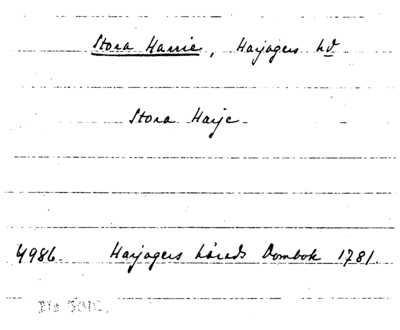 Stora Harrie, Harjagers hd
Stora Harje
4986. Harjagers härads Dombok 1781.